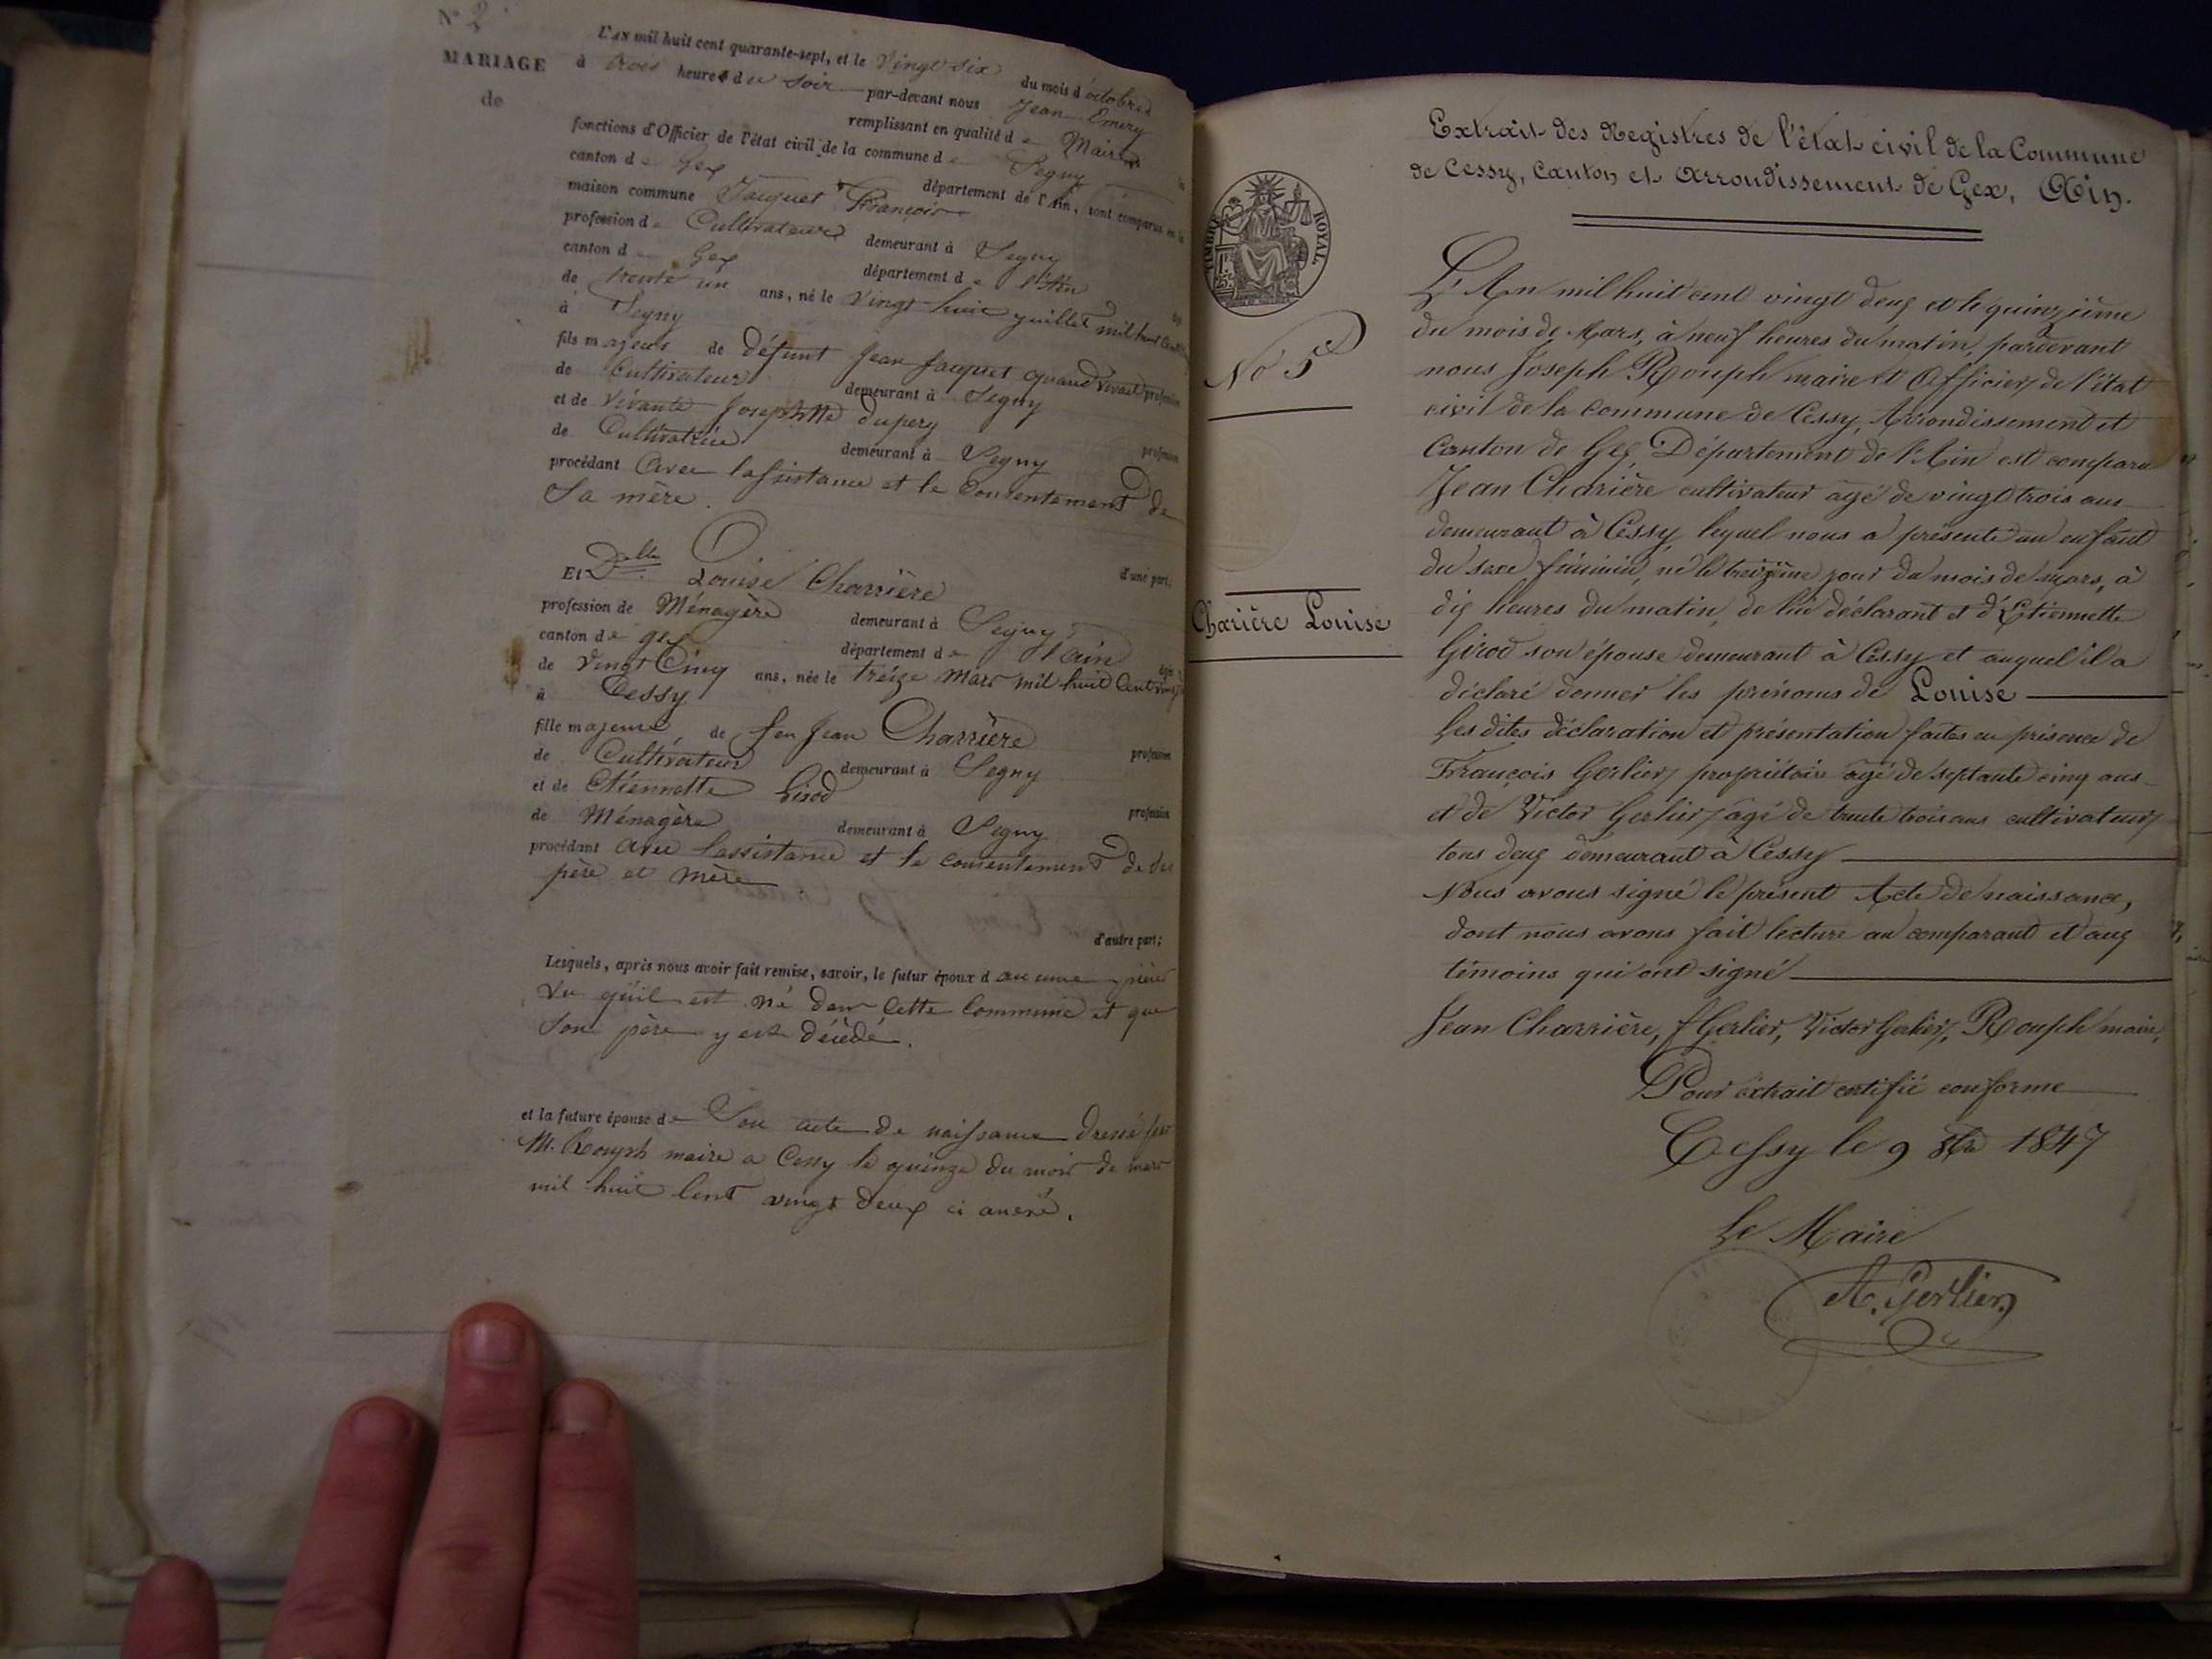 N° 2
MARIAGE
de
L'AN mil huit cent quarante-sept, et le Vingt six du mois d'octobre
à trois heures du soir par-devant nous Jean Emery
remplissant en qualité de Maire les
fonctions d'Officier de l'état civil de la commune de Segny
canton de Gex département de l'Ain, sont comparus en la
maison commune Jacquet François
profession de Cultivateur demeurant à Segny
canton d Gex département de l'Ain
de trente un ans, né le Vingt huit juillet mil huit cent
à Segny
fils majeur de défunt Jean Jacquet quand vivait profession
de Cultivateur demeurant à Segny
et de Vivante Josephtte dupery profession
de Cultivatrice demeurant à Segny
procédant Avec lassistance et le Consentement de
Sa mère.
d'une part;
Et Delle Louise Charrière
profession de Ménagère demeurant à Segny
canton de gex département de l'ain
de Vingt Cinq ans, née le treize Mars mil huit Cent vingt
à Cessy
fille majeure de feu Jean Charrière profession
de Cultivateur demeurant à Segny
et de Etiennette Girod profession
de Ménagère demeurant à Segny
procédant avec lassistance et le consentement de des
père et mère
d'autre part;
Lesquels, après nous avoir fait remise, savoir, le futur époux d aucune pièce
Vu qu'il est né dans Cette Commune et que
Son père y est décédé.
et la future épouse de Son acte de naissance dressé par
M. Rouph maire a Cessy le quinze du mois de mars
mil huit Cent vingt deux ci anexé.
Extrait des Registres de l'état civil de la Commune
de Cessy, Canton et Arrondissement de Gex, Ain.
TIMBRE ROYAL
No 5
Charière Louise
L'An mil huit cent vingt deux et le quinzième
du mois de Mars, à neuf heures du matin, pardevant
nous Joseph Rouph maire et Officier de l'état
civil de la commune de Cessy, Arrondissement et
Canton de Gex Département de l'Ain est comparu
Jean Charière cultivateur âgé de vingt trois ans
demeurant à Cessy lequel nous a présenté un enfant
du sexe féminin, né le treizième jour du mois de mars, à
dix heures du matin, de lui déclarant et d'Etiennette
Girod son épouse demeurant à Cessy et auquel il a
déclaré donner les prénoms de Louise
Les dites déclaration et présentation faites en présence de
François Gerlier propriétaire âgé de septante cinq ans
et de Victor Gerlier âgé de trente trois ans cultivateur
tous deux demeurant à Cessy
Nous avons signé le présent Acte de naissance,
dont nous avons fait lecture au comparant et aux
témoins qui ont signé
Jean Charrière, f Gerlier, Victor Gerlier, Rouph maire,
Pour extrait certifié conforme
Cessy le 9 8bre 1847
Le Maire
A. Gerlier